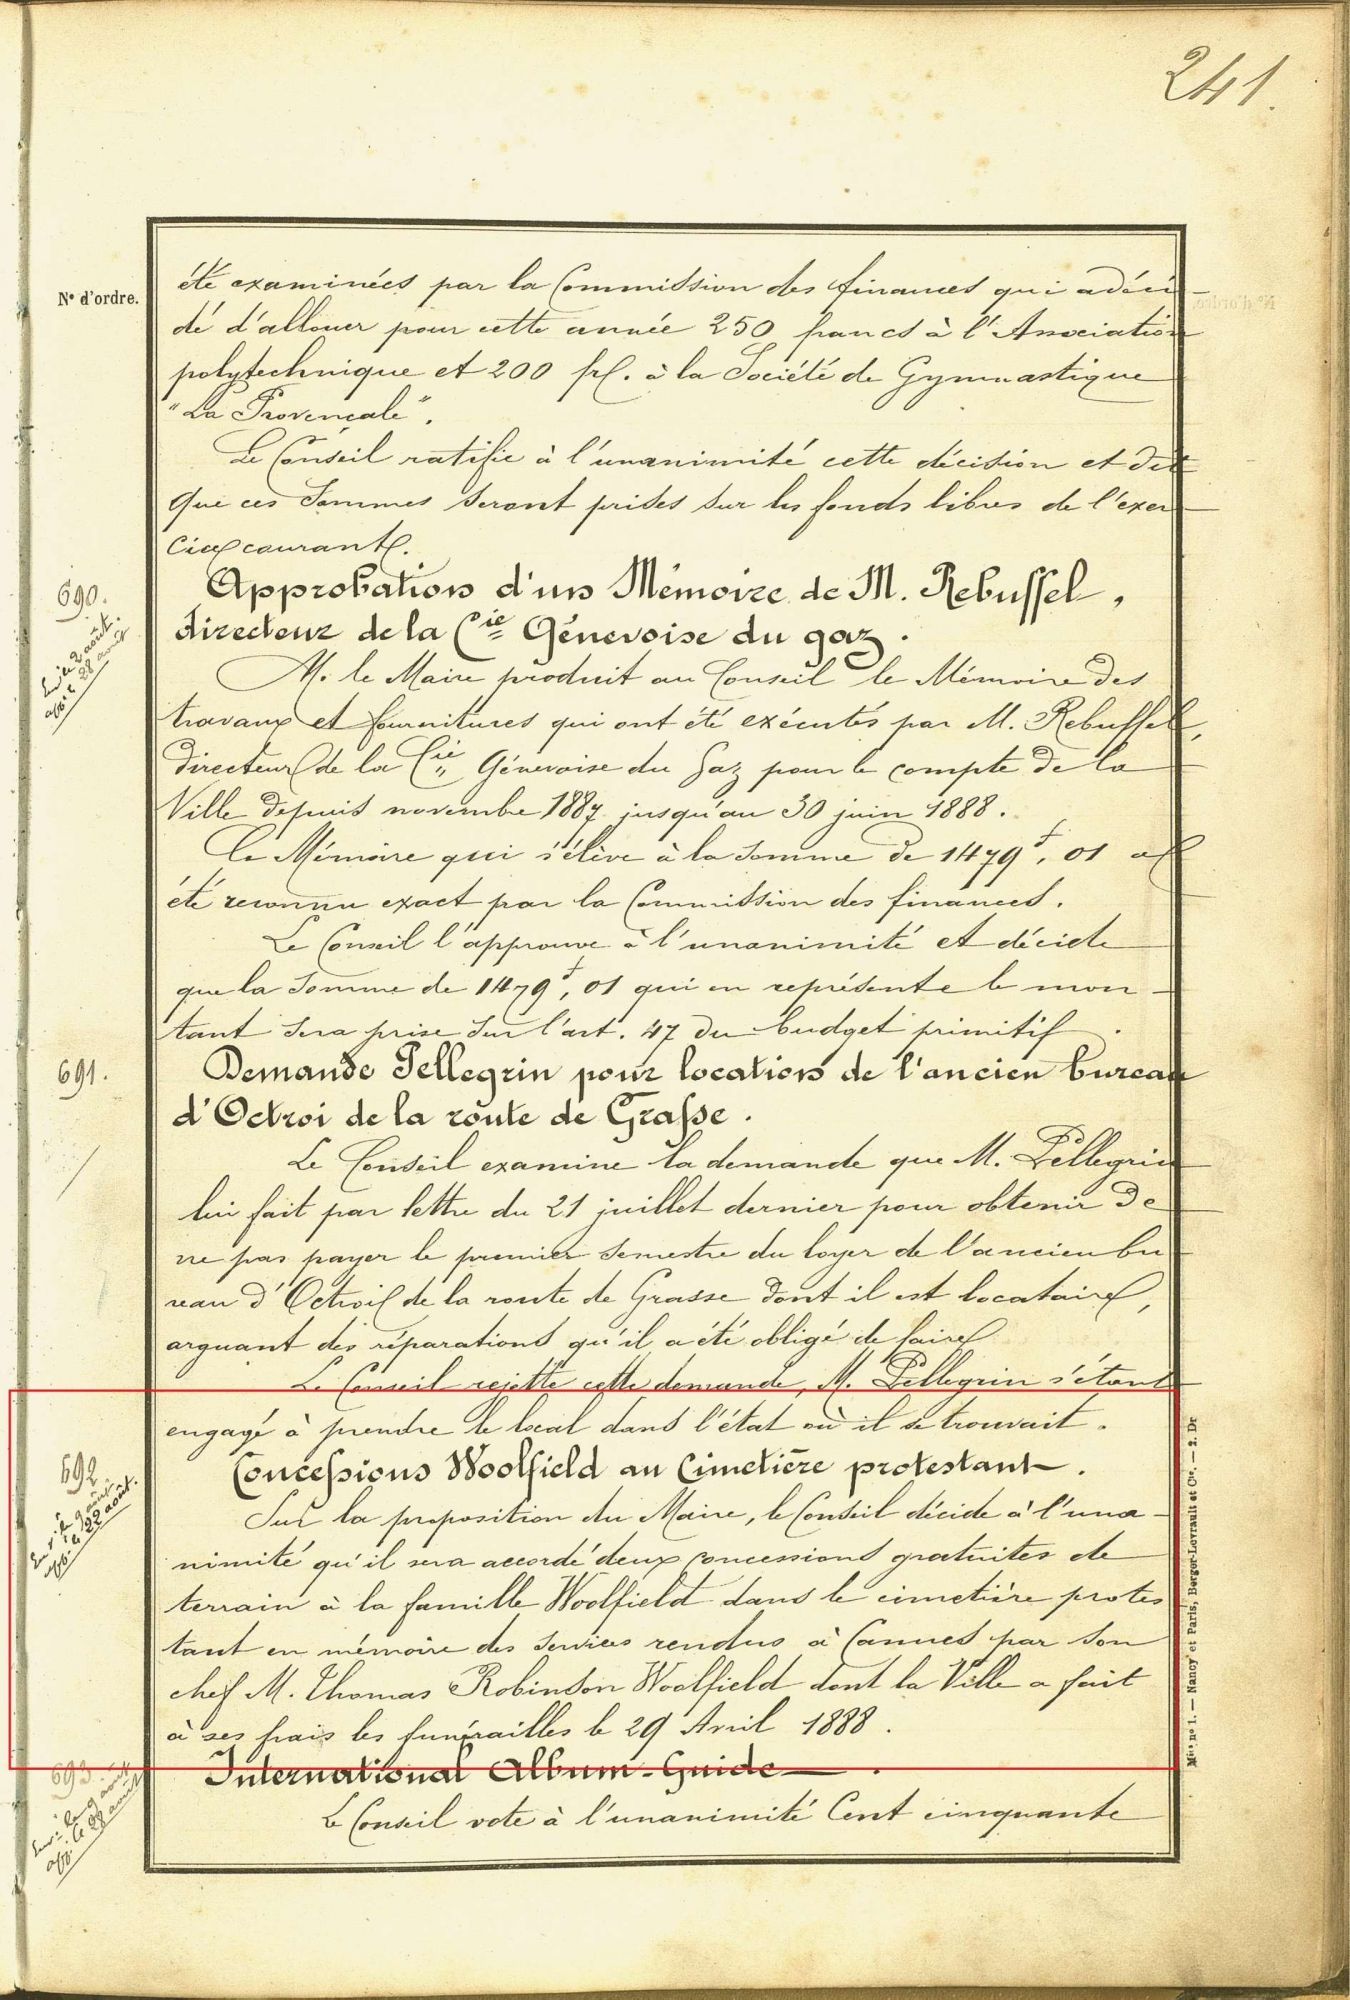 241.
N° d'ordre.
été examinées par la Commission des finances qui a déci-
dé d'allouer pour cette année 250 francs à l'Association
polytechnique et 200 fr. à la Société de Gymnastique
"La Provençale".
Le Conseil ratifie à l'unanimité cette décision et dit
que ces sommes seront prises sur les fonds libres de l'exer-
cice courant.
690.
Env. le 2 août.
app. le 28 août
Approbation d'un Mémoire de M. Rebuffel,
directeur de la Cie Génevoise du gaz.
M. le Maire produit au Conseil le Mémoire des
travaux et fournitures qui ont été exécutés par M. Rebuffel,
directeur de la Cie Génevoise du Gaz pour le compte de la
Ville depuis novembre 1887 jusqu'au 30 juin 1888.
Ce Mémoire qui s'élève à la somme de 1479f, 01 a
été reconnu exact par la Commission des finances.
Le Conseil l'approuve à l'unanimité et décide
que la somme de 1479f, 01 qui en représente le mon-
tant sera prise sur l'art. 47 du budget primitif.
691.
Demande Pellegrin pour location de l'ancien bureau
d'Octroi de la route de Grasse.
Le Conseil examine la demande que M. Pellegrin
lui fait par lettre du 21 juillet dernier pour obtenir de
ne pas payer le premier semestre du loyer de l'ancien bu
reau d'Octroi de la route de Grasse dont il est locataire,
arguant des réparations qu'il a été obligé de faire
Le Conseil rejette cette demande, M. Pellegrin s'étant
engagé à prendre le local dans l'état où il se trouvait.
692
Env. le 9 août
app. le 22 août.
Concessions Woolfield au Cimetière protestant.
Sur la proposition du Maire, le Conseil décide à l'una-
nimité qu'il sera accordé deux concessions gratuites de
terrain à la famille Woolfield dans le cimetière protes
tant en mémoire des services rendus à Cannes par son
chef M. Thomas Robinson Woolfield dont la Ville a fait
à ses frais les funérailles le 29 Avril 1888.
693.
Env. le 9 août
app. le 28 août
International Album-Guide.
Le Conseil vote à l'unanimité Cent cinquante
Mle n° 1. — Nancy et Paris, Berger-Levrault et Cie. — 2. Dr